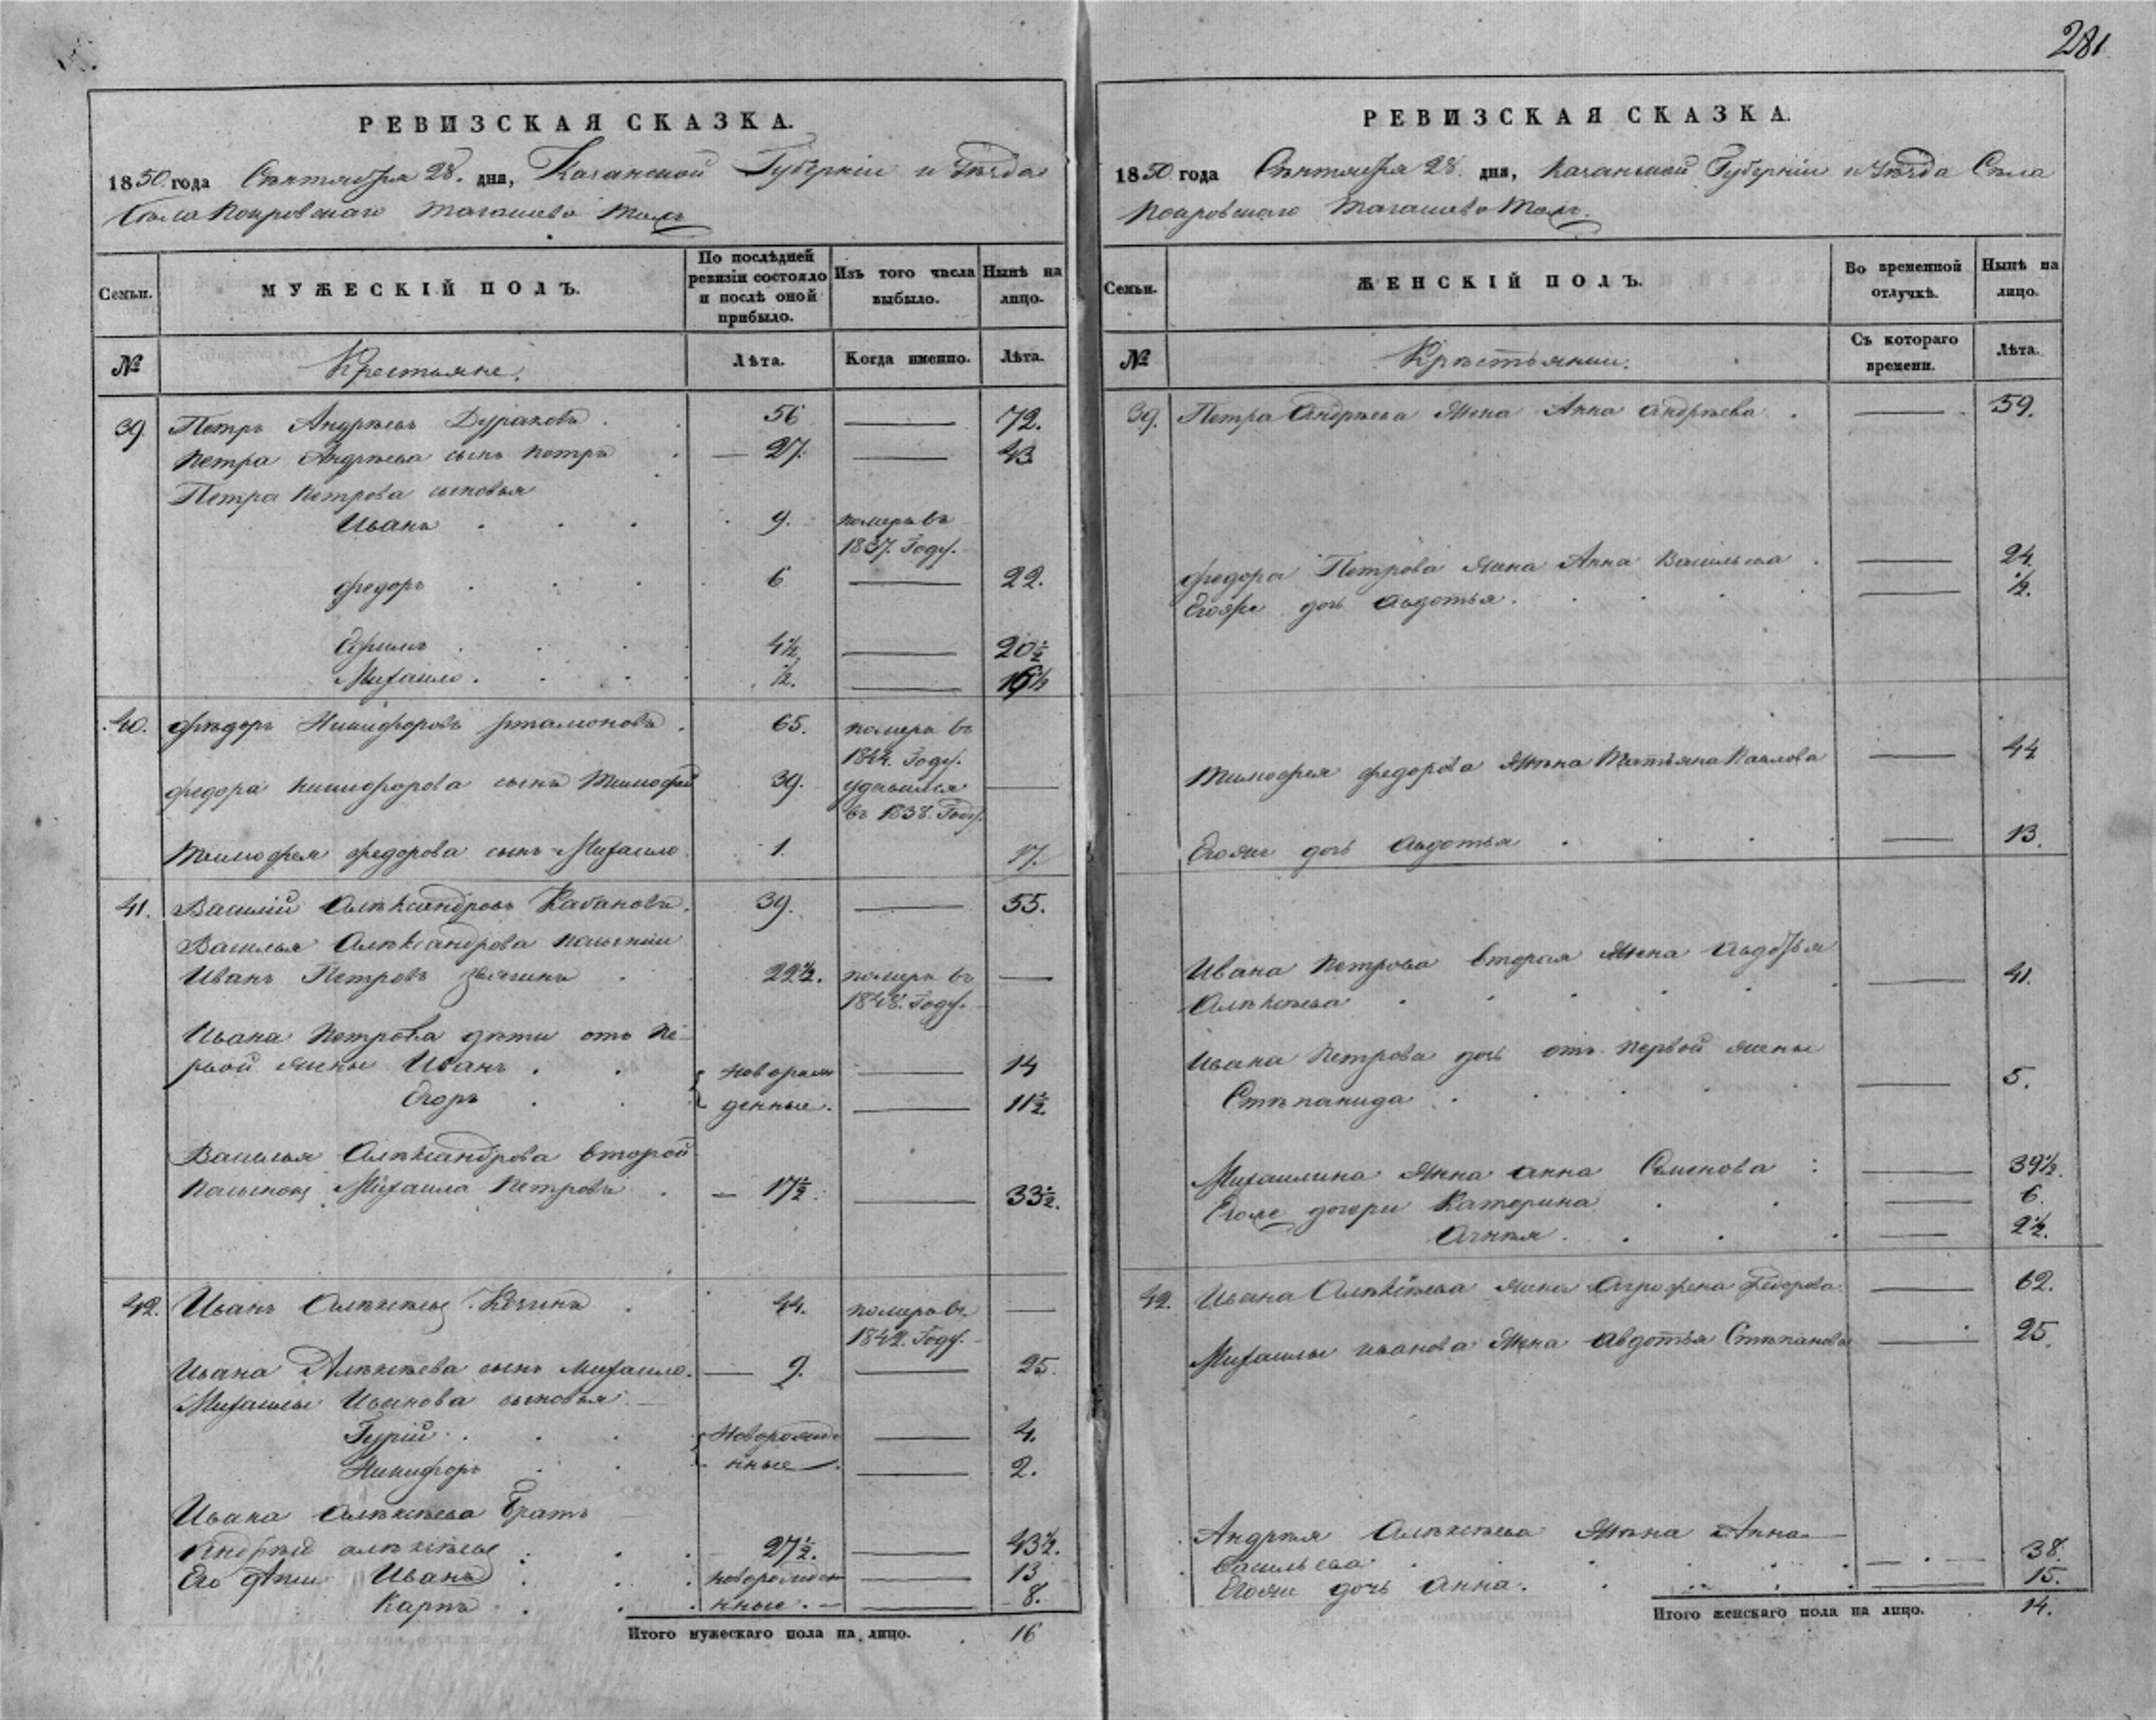 281
РЕВИЗСКАЯ СКАЗКА.
1850 года Сентября 28. дня, Казанской Губерніи и Уѣзда
Села Покровскаго Тагашево тожъ
Семьи.
МУЖЕСКІЙ ПОЛЪ.
По послѣдней ревизіи состояло и послѣ оной прибыло.
Изъ того числа выбыло.
Нынѣ на лицо.
№
Крестьяне.
Лѣта.
Когда именно.
Лѣта.
39. Петръ Андрѣевъ Дураковъ . 56 — 72.
Петра Андрѣева сынъ Петръ . — 27. — 43
Петра Петрова сыновья
Иванъ . . . 9. померъ въ
1837. Году.
Федоръ . . . 6 — 22.
Ефимъ . . . 4½ — 20½
Михайло . . . ½. — 16½
40. Федоръ Никифоровъ Артамоновъ . 65. померъ въ
1844. Году.
Федора Никифорова сынъ Тимофей 39. удавился —
въ 1838. Году.
Тимофея Федорова сынъ Михайло 1. 17.
41. Василій Алѣксандровъ Кабановъ. 39. — 55.
Василья Алѣксандрова пасынки
Иванъ Петровъ . 22½. померъ въ —
1848. Году.
Ивана Петрова дѣти отъ пе-
рвой жены Иванъ . . новорож — 14
Егоръ . . денные. — 11½.
Василья Алѣксандрова второй
пасынокъ Михайла Петровъ . — 17½. — 33½.
42. Иванъ Алѣксѣевъ . 44. померъ въ —
1842. Году.
Ивана Алѣксѣева сынъ Михайло. — 9. — 25.
Михайлы Иванова сыновья
Гурій . . . Новорожде — 4.
Никифоръ . . нные — 2.
Ивана Алѣксѣева братъ
Андрѣй Алѣксѣевъ . . . 27½. — 43½.
Его дѣти Иванъ . . . новорожден — 13
Карпъ . . . нные . — 8.
Итого мужескаго пола на лицо. 16
РЕВИЗСКАЯ СКАЗКА.
1850 года Сѣнтября 28. дня, Казанской Губерніи и Уѣзда Сѣла
Покровскаго Тагашево Тожъ.
Семьи.
ЖЕНСКІЙ ПОЛЪ.
Во временной отлучкѣ.
Нынѣ на лицо.
№
Крѣстьянки.
Съ котораго времени.
Лѣта.
39. Петра Андрѣева Жена Анна Андрѣева . — 59.
Федора Петрова Жена Анна Васильева . — 24.
Егоже дочь Авдотья . . . — ½.
Тимофея Федорова Жѣна Татьяна Павлова — 44
Егоже дочь Авдотья . . . — 13.
Ивана Петрова вторая Жена Авдотья
Алѣксѣева . . . — 41.
Ивана Петрова дочь отъ первой жены
Стѣпанида . . . — 5.
Михайлина Жена Анна Семенова : — 39½.
Егоже дочери Катерина . . — 6.
Агнѣя . . . — 2½.
42. Ивана Алѣксѣева жена Агрофена Федорова — 62.
Михайлы Иванова Жена Авдотья Стѣпанова — 25.
Андрѣя Алѣксѣева Жѣна Анна
Васильева . . . — 38.
Егоже дочь Анна . . . — 15.
Итого женскаго пола на лицо. 14.